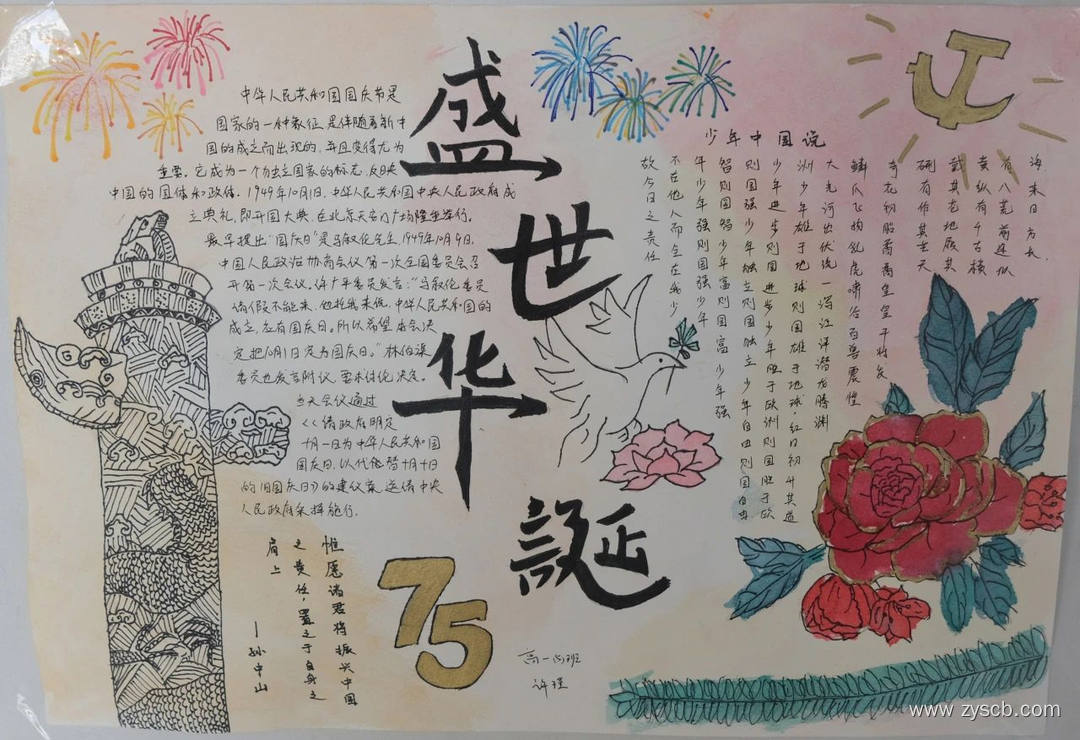 盛世华诞
中华人民共和国国庆节是
国家的一种象征,是伴随着新中
国的成立而出现的,并且变得尤为
重要。它成为一个独立国家的标志,反映
中国的国体和政体。1949年10月1日,中华人民共和国中央人民政府成
立典礼,即开国大典,在北京天安门广场隆重举行。
最早提出“国庆日”是马叙伦先生,1949年10月9日,
中国人民政治协商会议第一次全国委员会召
开第一次会议。许广平委员发言:“马叙伦委员
请假不能来,他托我来说,中华人民共和国的
成立,应有国庆日。所以希望本会决
定把10月1日定为国庆日。”林伯渠
委员也发言附议,要求讨论决定。
当天会议通过
《请政府明定
十月一日为中华人民共和国
国庆日,以代替旧十月十日
的旧国庆日》的建议案,送请中央
人民政府采择施行。
惟愿诸君将振兴中国
之责任,置之于自身之
肩上
—孙中山
75
少年中国说
故今日之责任
不在他人而全在我少
年少年强则国强少年
智则国智少年富则国富少年强
则国强少年独立则国独立少年自由则国自由
少年进步则国进步少年胜于欧洲则国胜于欧
洲少年雄于地球则国雄于地球,红日初升其道
大光河出伏流一泻汪洋潜龙腾渊
鳞爪飞扬乳虎啸谷百兽震惶
奇花初胎矞矞皇皇干将发
硎有作其芒天
戴其苍地履其
黄纵有千古横
有八荒前途似
海来日方长
高一(6)班
许瑾
www.zyscb.com